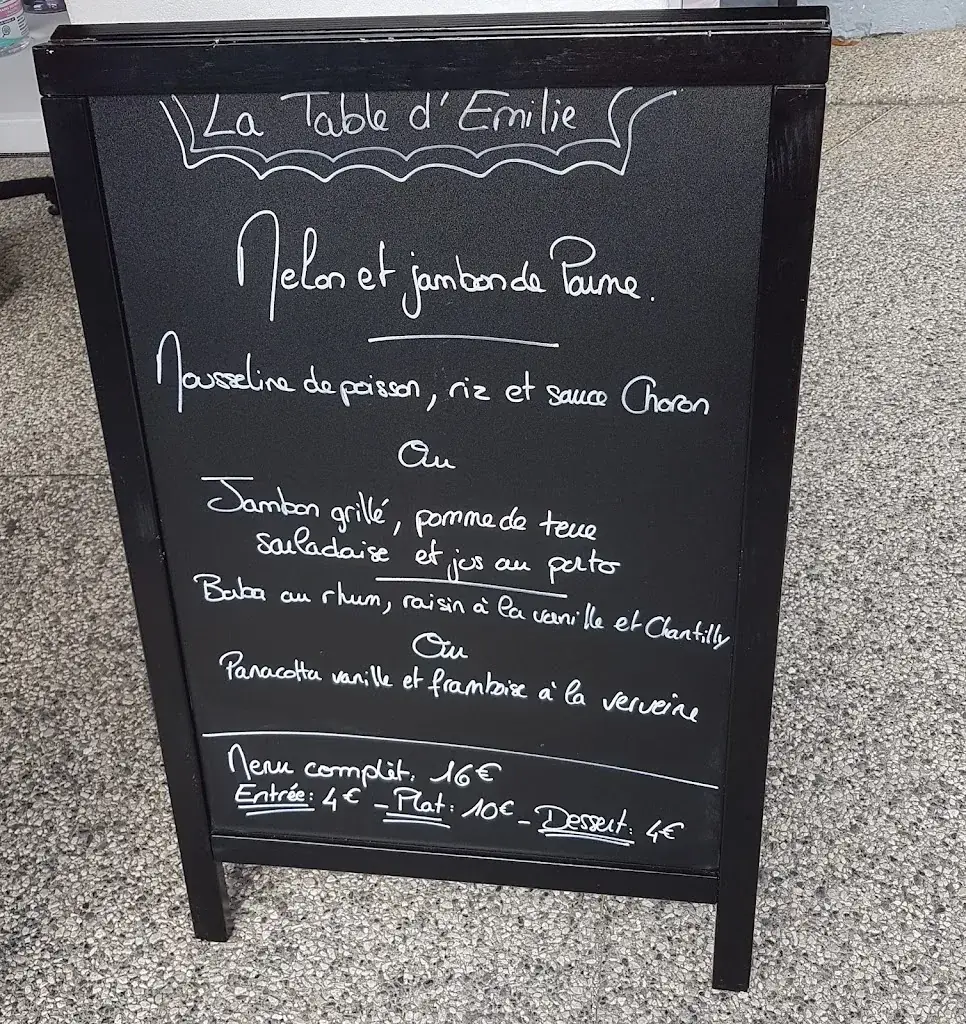 La Table d'Emilie
Melon et jambon de Parme.
Mousseline de poisson, riz et sauce Choron
Ou
Jambon grillé, pomme de terre
sarladaise et jus au porto
Baba au rhum, raisin à la vanille et Chantilly
Ou
Panacotta vanille et framboise à la verveine
Menu complèt: 16€
Entrée: 4€ - Plat: 10€ - Dessert: 4€